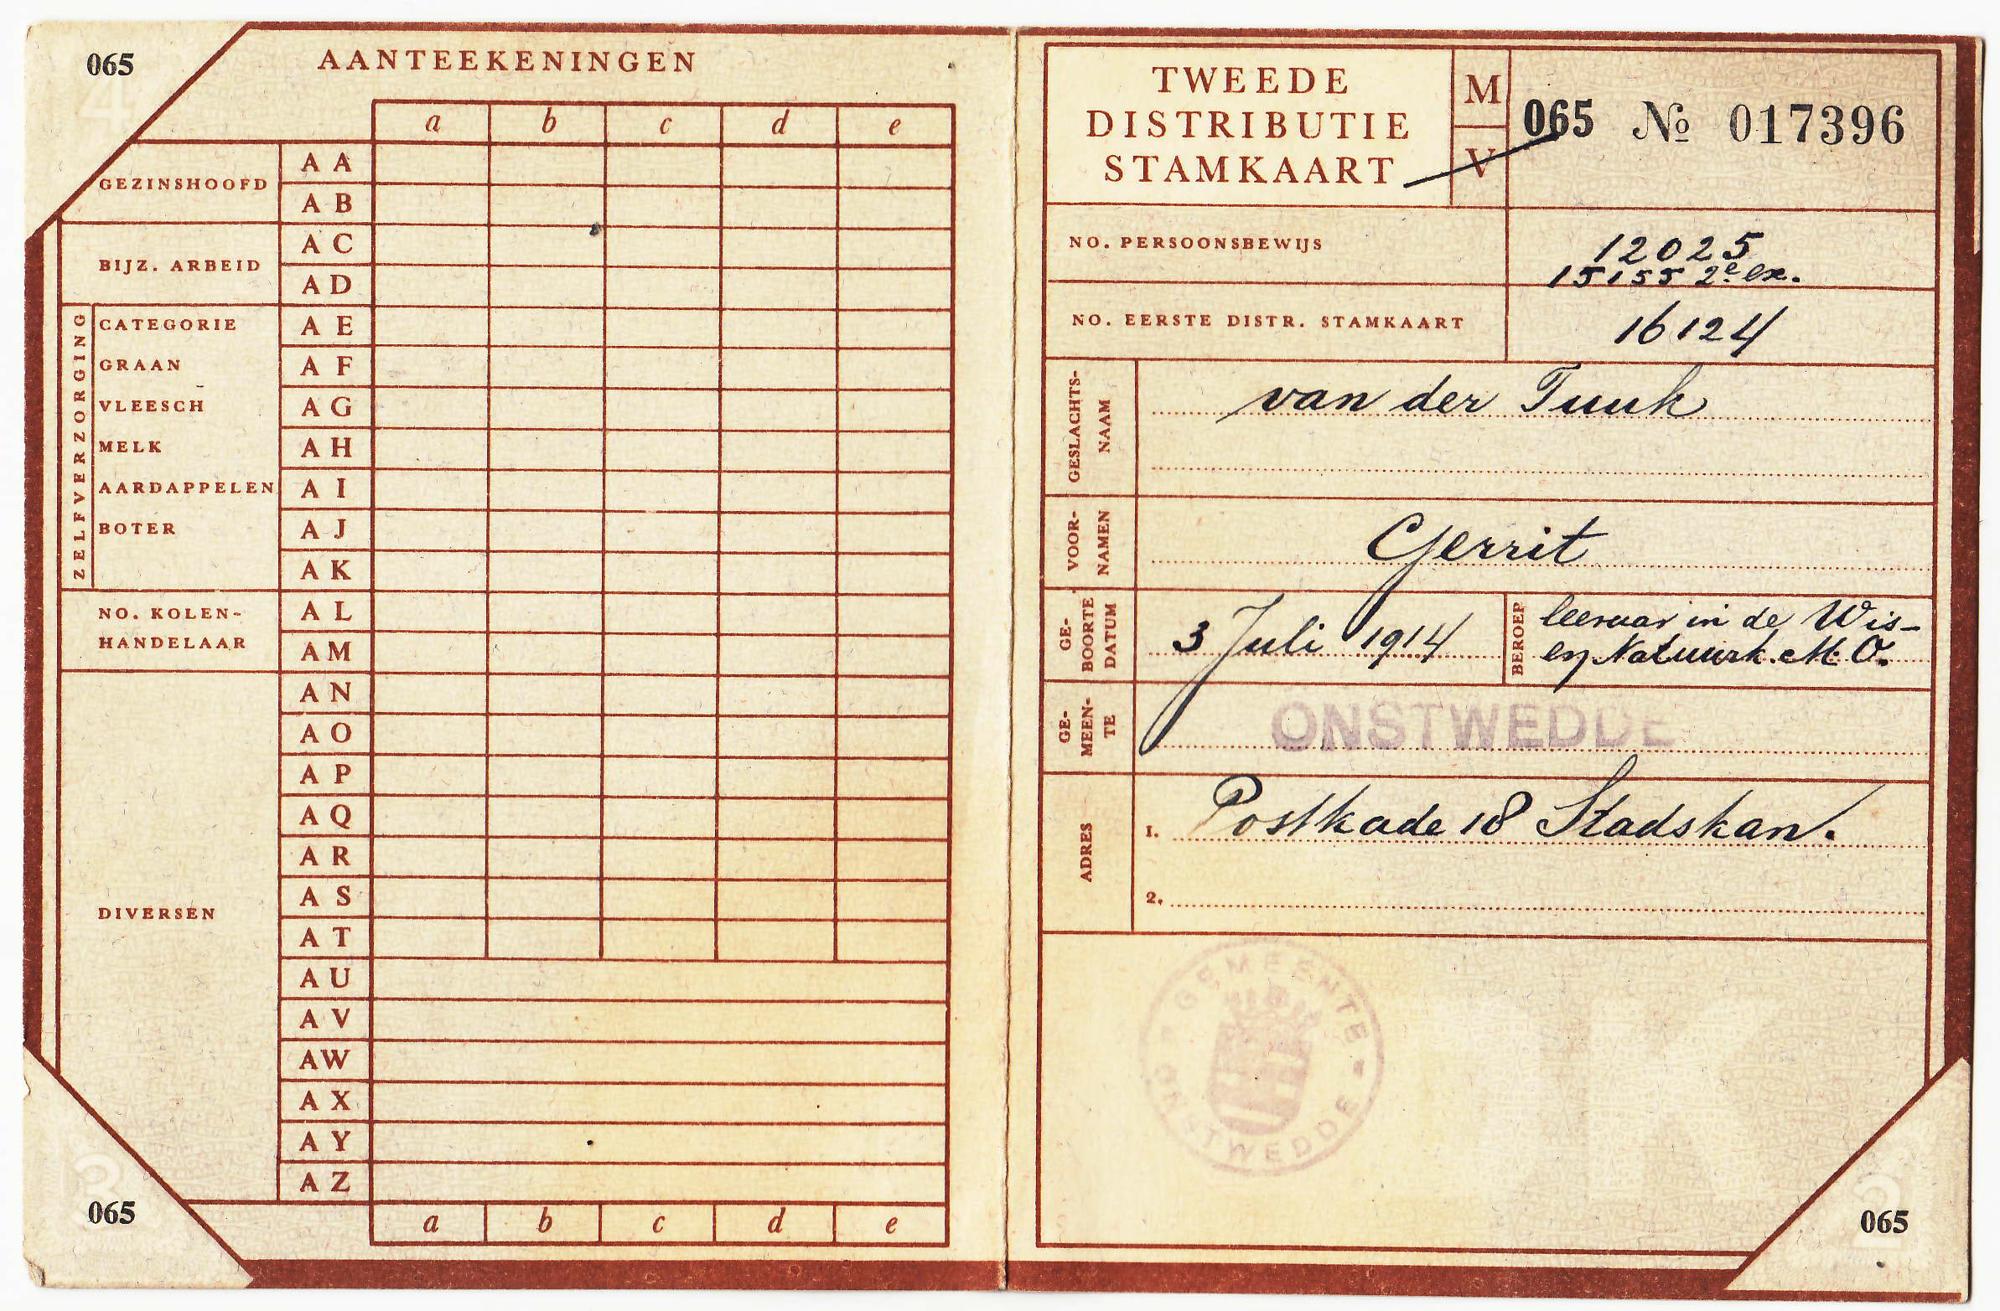 065
AANTEEKENINGEN
a b c d e
GEZINSHOOFD
A A
A B
BIJZ. ARBEID
A C
A D
ZELFVERZORGING
CATEGORIE A E
GRAAN A F
VLEESCH A G
MELK A H
AARDAPPELEN A I
BOTER A J
A K
NO. KOLEN-
HANDELAAR
A L
A M
DIVERSEN
A N
A O
A P
A Q
A R
A S
A T
A U
A V
A W
A X
A Y
A Z
a b c d e
065
TWEEDE
DISTRIBUTIE
STAMKAART
M
V
065 № 017396
NO. PERSOONSBEWIJS 12025
15155 2e ex.
NO. EERSTE DISTR. STAMKAART 16124
GESLACHTS-
NAAM
van der Tuuk
VOOR-
NAMEN
Gerrit
GE-
BOORTE
DATUM
3 Juli 1914
BEROEP
leeraar in de Wis-
en Natuurk. M.O.
GE-
MEEN-
TE
ONSTWEDDE
ADRES
1. Postkade 18 Stadskan.
2.
GEMEENTE
ONSTWEDDE
065